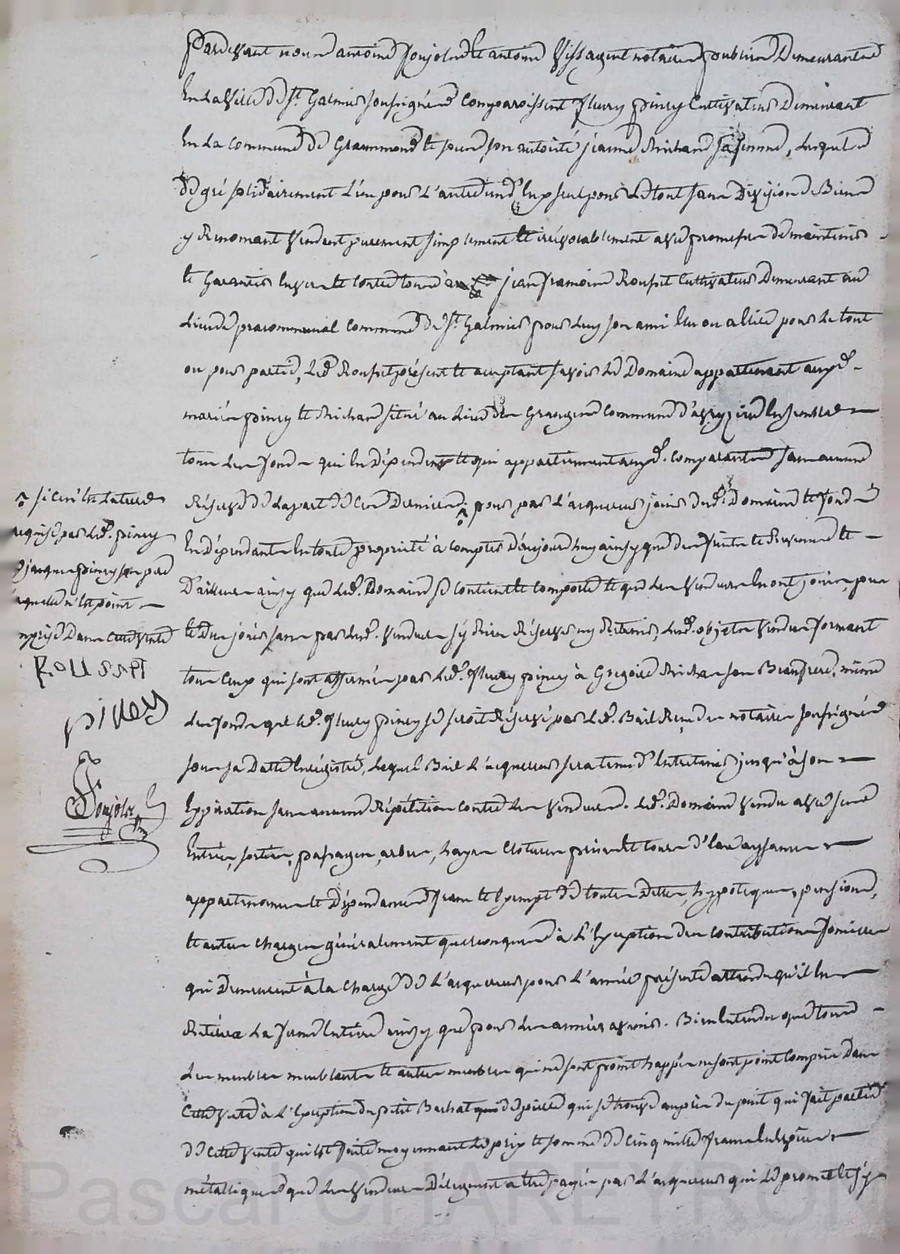 Pardevant nous antoine Soujolon et antoine Vissaguet notaires publics Demeurant
En la Ville de St. Galmier soussignés Comparoissent fleury piney Cultivateur Demeurant
En la commune de Grammond et sous son autorité jeanne Richard sa femme, lesquels
de gré solidairement l'un pour l'autre un d'eux seul pour le tout sans Division de Biens
y Renonçant Vendent purement simplement et irrévocablement avec promesse de maintenir
et Garantir Envers et Contre tous à jean françois Rousset Cultivateur Demeurant au
Lieu de commune de St. Galmier pour Luy son ami Elu ou a Elire pour Le tout
ou pour partie, Led. Rousset présent et acceptant savoir Le Domaine appartenant auxd.
mariés piney et Richard situé au Lieu de Grange commune d'aveyzieu Ensemble
tous les fonds qui En dépendent et qui appartiennent auxd. Comparants sans aucune
Réserve de La part de ces Derniers pour par l'acquereur jouir dud. Domaine et fonds
En dépendants En toute propriété à compter d'aujourd'huy ainsy que des fruits et Revenus et
D'ailleurs ainsy que Led. Domaine se contient et comporte et que les Vendeurs En ont joui, pu
et Du jouir sans par lesd. Vendeurs s'y Rien Réserver ny Retenir, Lesd. objets Vendus formant
tous Ceux qui sont affermés par Led. fleury piney à Grégoire Richard son Beaufrere, même
Les fonds que led. fleury piney se seroit Réservé par Led. Bail Reçu des notaires soussignés
sous sa Datte Enregistré, Lequel Bail L'acquereur sera tenu d'Entretenir jusqu'à son
Expiration sans aucune Répétition contre Les Vendeurs. Led. Domaine Vendu avec ses
Entrées, sorties, passages, arbres, hayes Clotures prises et tours d'Eau aysances
appartenances et Dépendances franc et Exempt de toutes Dettes, hypotèques, pensions,
et autres charges généralement quelconques à L'Exception des contributions foncieres
qui Demeurent à la charge de L'acquereur pour L'année présente attendu qu'il En
Retirera La ferme Entiere ainsy que pour les années avenir. Bien Entendu que tous
Les meubles meublants et autres meubles qui ne sont point sont point Compris Dans
Cette Vente à L'Exception du petit Bachat de pierre qui se trouve auprès du puit qui fait partie
de Cette Vente qui est faite moyennant Le prix et somme de cinq mille francs En Espèces
métalliques que Les Vendeurs Délèguent a être payée par L'acquereur qui Le promet
si ce n'est
acquise par Led. piney
de jacque piney son père
laquelle n'est point
comprise Dans Cette Vente
ROUSSET
piney
Soujolon
Pascal CHAREYRON